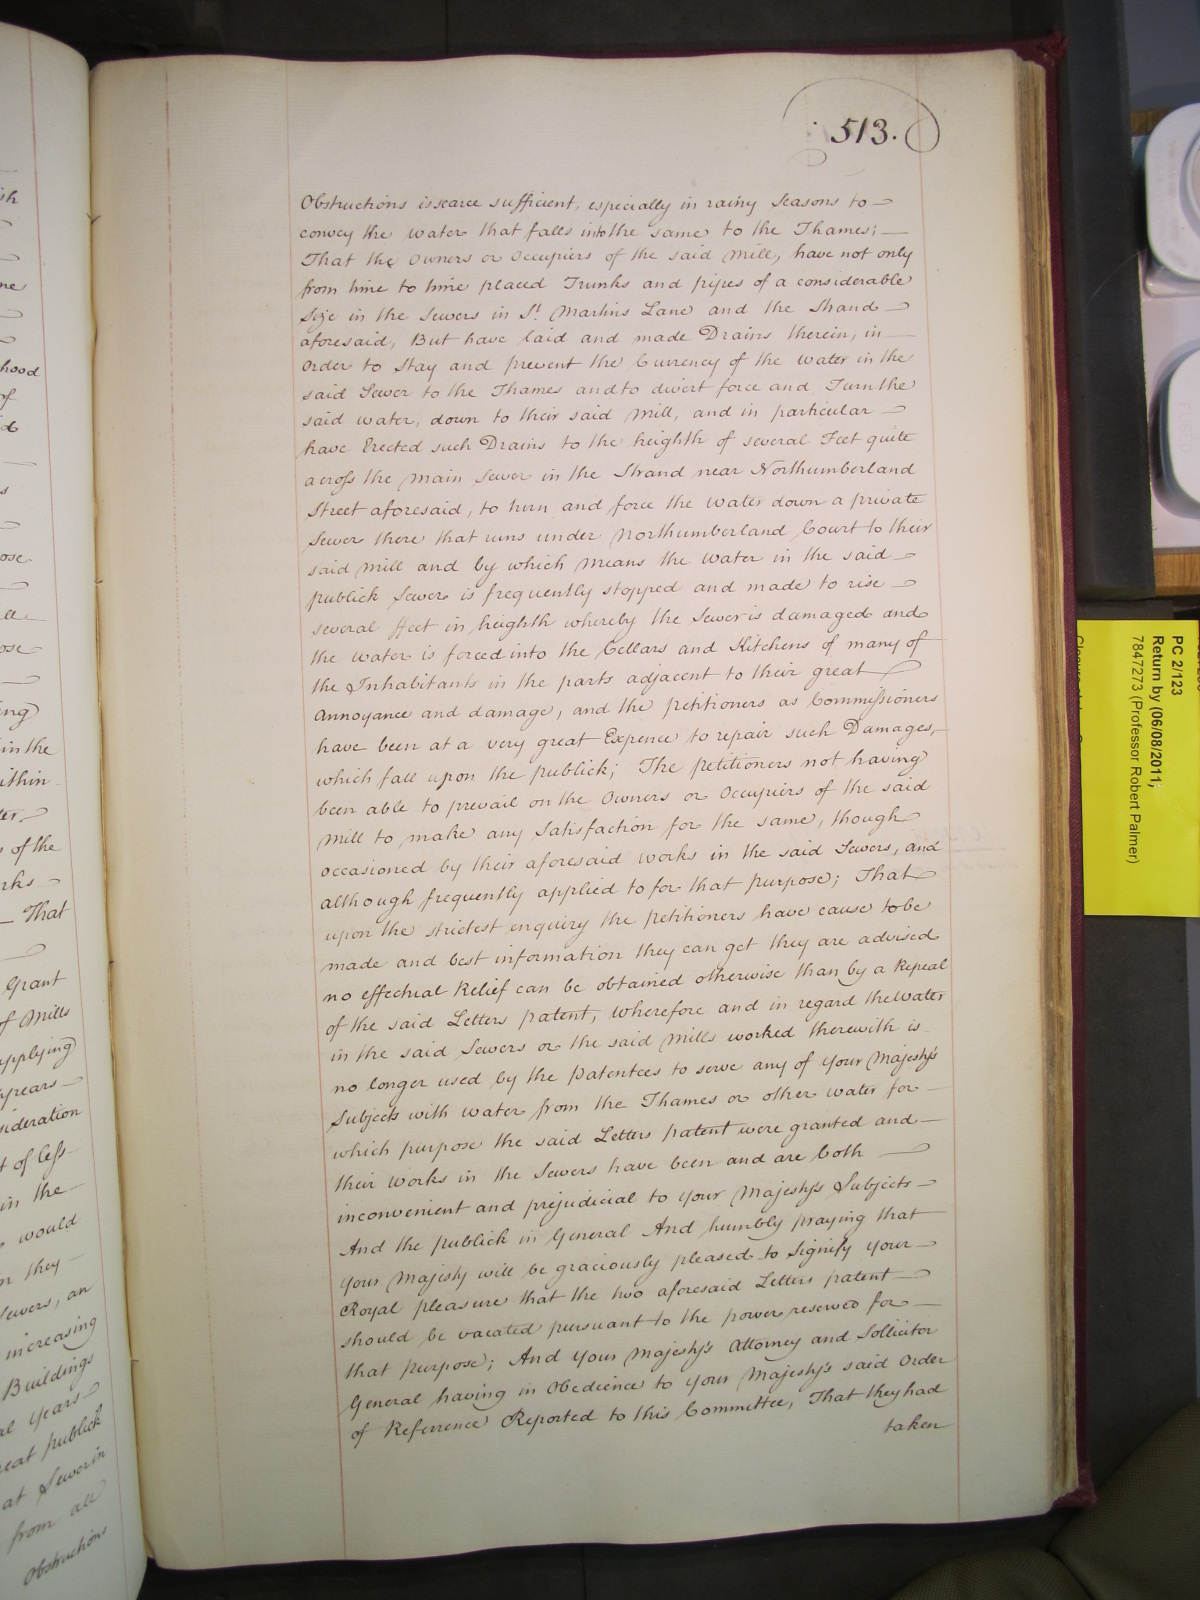 513.
Obstructions is scarce sufficient, especially in rainy Seasons to
convey the water that falls into the same to the Thames;
That the Owners or Occupiers of the said Mill, have not only
from time to time placed Trunks and pipes of a considerable
Size in the Sewers in St. Martins Lane and the Strand
aforesaid, But have laid and made Drains therein, in
Order to Stay and prevent the Currency of the water in the
said Sewer to the Thames and to divert force and Turn the
said water, down to their said Mill, and in particular
have Erected such Drains to the heighth of several Feet quite
across the main Sewer in the Strand near Northumberland
Street aforesaid, to turn and force the water down a private
Sewer there that runs under Northumberland Court to their
said mill and by which Means the Water in the said
publick Sewer is frequently stopped and made to rise
several ffeet in heighth whereby the Sewer is damaged and
the water is forced into the Cellars and Kitchens of many of
the Inhabitants in the parts adjacent to their great
Annoyance and damage, and the petitioners as Commissioners
have been at a very great Expence to repair such Damages,
which fall upon the publick; The petitioners not having
been able to prevail on the Owners or Occupiers of the said
Mill to make any Satisfaction for the same, though
occasioned by their aforesaid works in the said Sewers, and
although frequently applied to for that purpose; That
upon the strictest enquiry the petitioners have cause to be
made and best information they can get they are advised
no effectual Relief can be obtained otherwise than by a Repeal
of the said Letters patent, wherefore and in regard the Water
in the said Sewers or the said Mills worked therewith is
no longer used by the patentees to serve any of your Majesty's
Subjects with water from the Thames or other water for
which purpose the said Letters patent were granted and
their works in the Sewers have been and are both
inconvenient and prejudicial to your Majesty's Subjects
And the publick in General And humbly praying that
your Majesty will be graciously pleased to Signify your
Royal pleasure that the two aforesaid Letters patent
should be vacated pursuant to the power reserved for
that purpose; And your Majesty's Attorney and Sollicitor
General having in Obedience to your Majesty's said Order
of Referrence Reported to this Committee, That they had
taken
hood
of
in the
ithin
of the
That
Grant
of Mills
applying
years
sideration
t of less
in the
would
they
Sewers, an
increasing
Buildings
years
great publick
at Sewer in
from all
Obstructions
PC 2/123
Return by (06/08/2011;
7847273 (Professor Robert Palmer)